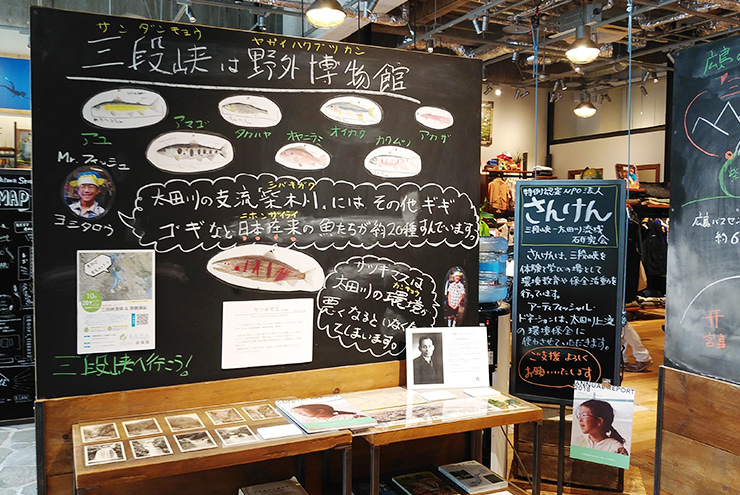 サンダンきょう
ヤガイハクブツカン
三段峡は野外博物館
アユ
アマゴ
タカハヤ
オヤニラミ
オイカワ
カワムツ
アカザ
Mr.フィッシュ
ヨシタロウ
シバキガワ
太田川の支流、柴木川、には、その他ギギ
ニホンザイライ
ゴギなど日本在来の魚たちが約20種すんでいます。
サツキマスは
カンキョウ
太田川の環境が
悪くなるといなくなっ
てしまいます。
サツキマス
三段峡へ行こう!
特定非営利活動 NPO法人
さんけん
三段峡-太田川流域
研究会
さんけんは、三段峡を
体験と学びの場として
環境教育や保全活動を
行っています。
アーティフィシャル
ドネーションは、太田川上流
の環境保全に
使わさせていただきます。
ご支援 よろしく
お願いいたします
ANNUAL REPORT
2018
MAP
広島
広島バスセン
約6